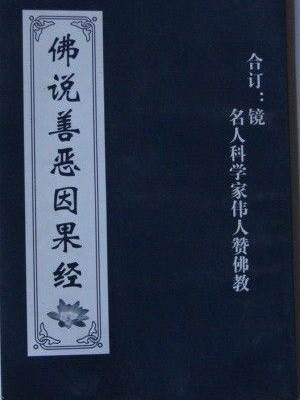 合订：镜
名人科学家伟人赞佛教
佛说善恶因果经